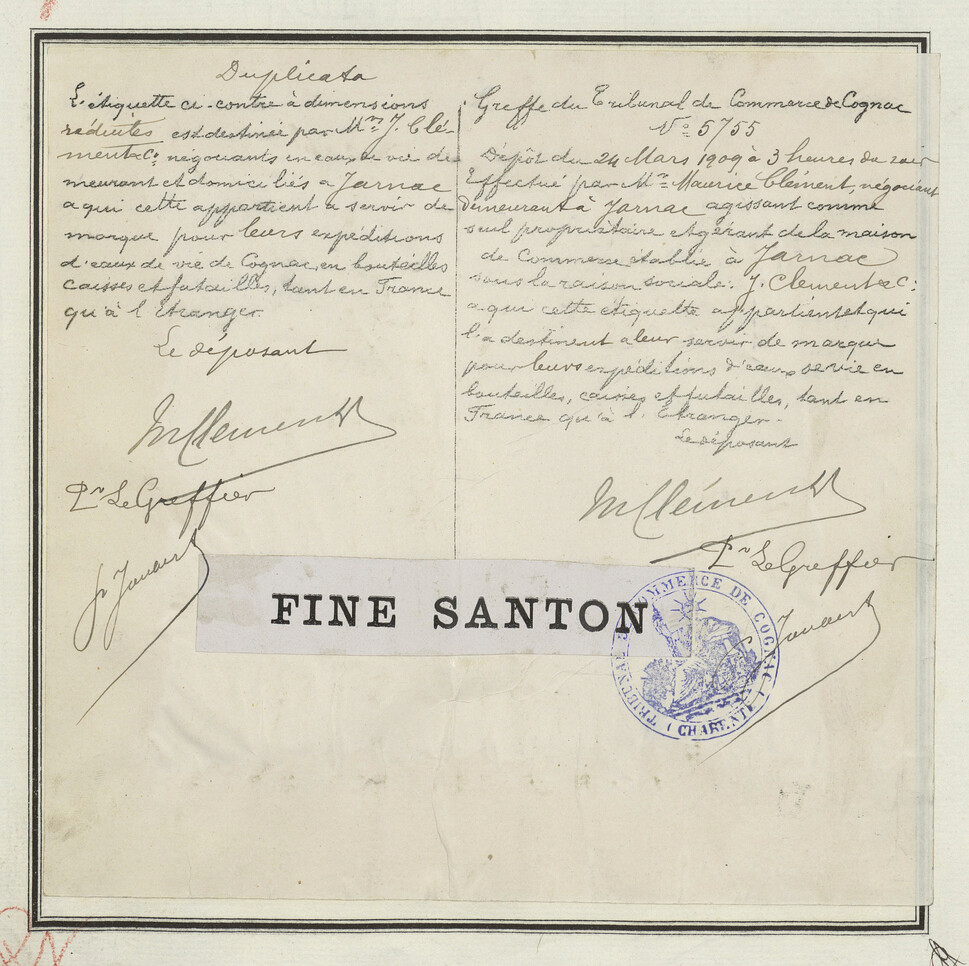 Duplicata
L'étiquette ci-contre à dimensions
réduites est destinée par Mrs J. Clé-
ment & Co négociants en eaux de vie de
meurant et domiciliés a Jarnac
a qui cette appartient a servir de
marque pour leurs expéditions
d'eaux de vie de Cognac, en bouteilles
caisses et futailles, tant en France
qu'à l'Etranger.
Le déposant
M Clément
Pr Le Greffier
Greffe du Tribunal de Commerce de Cognac
No 5755
Dépôt du 24 Mars 1909 à 3 heures du soir
Effectué par Mr Maurice Clément, négociant
demeurant à Jarnac agissant comme
seul propriétaire et gérant de la maison
de Commerce établie à Jarnac
sous la raison sociale: J. Clément & Co
a qui cette étiquette appartient et qui
l'a destinent a leur servir de marque
pour leurs expéditions d'eaux de vie en
bouteilles, caisses et futailles, tant en
France qu'à l'Etranger.
Le déposant
M Clément
Pr Le Greffier
FINE SANTON
TRIBUNAL DE COMMERCE DE COGNAC
(CHARENTE)